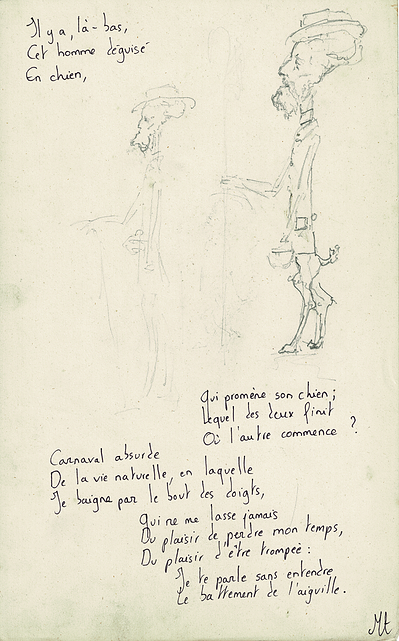 Il y a, là-bas,
Cet homme déguisé
En chien,
Qui promène son chien ;
Lequel des deux finit
Où l'autre commence ?
Carnaval absurde
De la vie naturelle, en laquelle
Je baigne par le bout des doigts,
Qui ne me lasse jamais
Du plaisir de perdre mon temps,
Du plaisir d'être trompée :
Je te parle sans entendre
Le battement de l'aiguille.
Mt